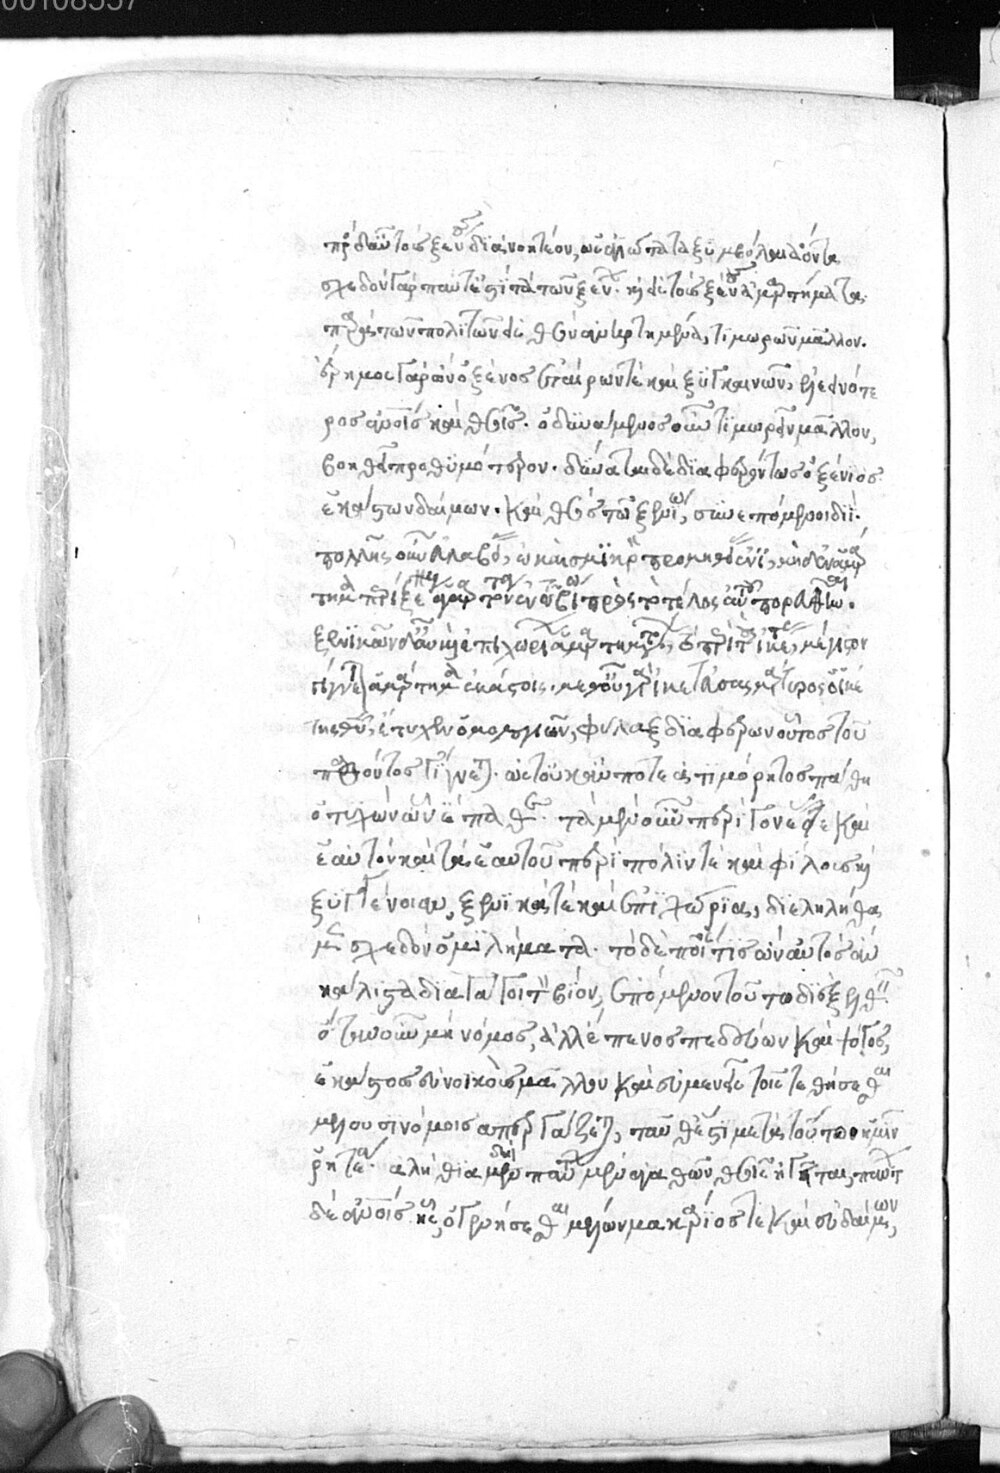 πρὸς δ' αὖ τοὺς ξένους διανοητέον, ὡς ἁγιώτατα ξυμβόλαια ὄντα
σχεδὸν γὰρ πάντ' ἐστὶ τὰ τῶν ξένων καὶ εἰς τοὺς ξένους ἁμαρτήματα
παρὰ τὰ τῶν πολιτῶν εἰς θεὸν ἀνηρτημένα τιμωρὸν μᾶλλον.
ἔρημος γὰρ ὢν ὁ ξένος ἑταίρων τε καὶ ξυγγενῶν, ἐλεεινότε
ρος ἀνθρώποις καὶ θεοῖς. ὁ δυνάμενος οὖν τιμωρεῖν μᾶλλον,
βοηθεῖ προθυμότερον. δύναται δὲ διαφερόντως ὁ ξένιος
ἑκάστων δαίμων. καὶ θεὸς τῷ ξενίῳ συνεπόμενοι διί.
πολλῆς οὖν εὐλαβείας, ᾧ καὶ σμικρὸν προμηθείας ἔνι, μηδὲν ἁμάρ
τημα περὶ ξένους ἁμαρτόντα ἐν τῷ βίῳ πρὸς τὸ τέλος αὐτοῦ πορευθῆναι.
ξενικῶν δ' αὖ καὶ ἐπιχωρίων ἁμαρτημάτων, τὸ περὶ τοὺς ἱκέτας μέγιστον
γίγνεται ἁμάρτημα ἑκάστοις. μεθ' οὗ γὰρ ἱκετεύσας μάρτυρος ὁ ἱκέ
της θεοῦ, ἔτυχεν ὁμολογιῶν, φύλαξ διαφέρων οὗτος τοῦ
παθόντος γίγνεται. ὥστ' οὐκ ἄν ποτε ἀτιμώρητος πάθη
ὁ τυχὼν ὧν ἔπαθε. τὰ μὲν οὖν περὶ γονέας τε καὶ
ἑαυτὸν καὶ τὰ ἑαυτοῦ περὶ πόλιν τε καὶ φίλους καὶ
ξυγγένειαν, ξενικά τε καὶ ἐπιχώρια, διεληλύθα
μεν σχεδὸν ὁμιλήματα. τὸ δὲ ποῖός τις ὢν αὐτὸς ἂν
κάλλιστα διαγάγοι τὸν βίον, ἑπόμενον τούτῳ διεξελθεῖν
ὅσα οὖν μὴ νόμος, ἀλλ' ἔπαινος παιδεύων καὶ ψόγος,
ἑκάστους εὐηνίους μᾶλλον καὶ εὐμενεῖς τοῖς τεθήσεσθαι
μέλλουσι νόμοις ἀπεργάζεται, ταῦτ' ἐστὶ μετὰ τοῦτο ἡμῖν
ῥητέα. ἀλήθεια δὴ πάντων μὲν ἀγαθῶν θεοῖς ἡγεῖται, πάντων
δὲ ἀνθρώποις ἧς ὁ γενήσεσθαι μέλλων μακάριός τε καὶ εὐδαίμων,